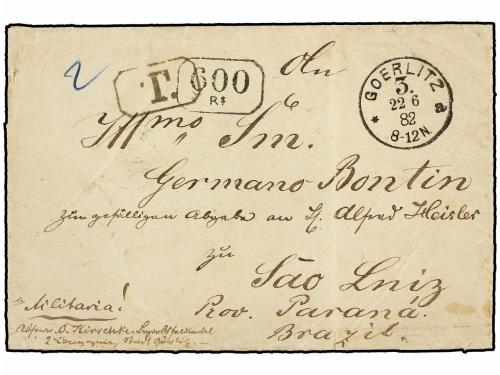 2
T.
600
R$
GOERLITZ
a
3.
22 6
82
* 8-12N.
An
Illmo Sm.
Germano Bontin
zum gefälligen Abgabe an H. Alfred Heisler
zu
São Luiz
Rov. Paraná.
Brazil.
Militaria!